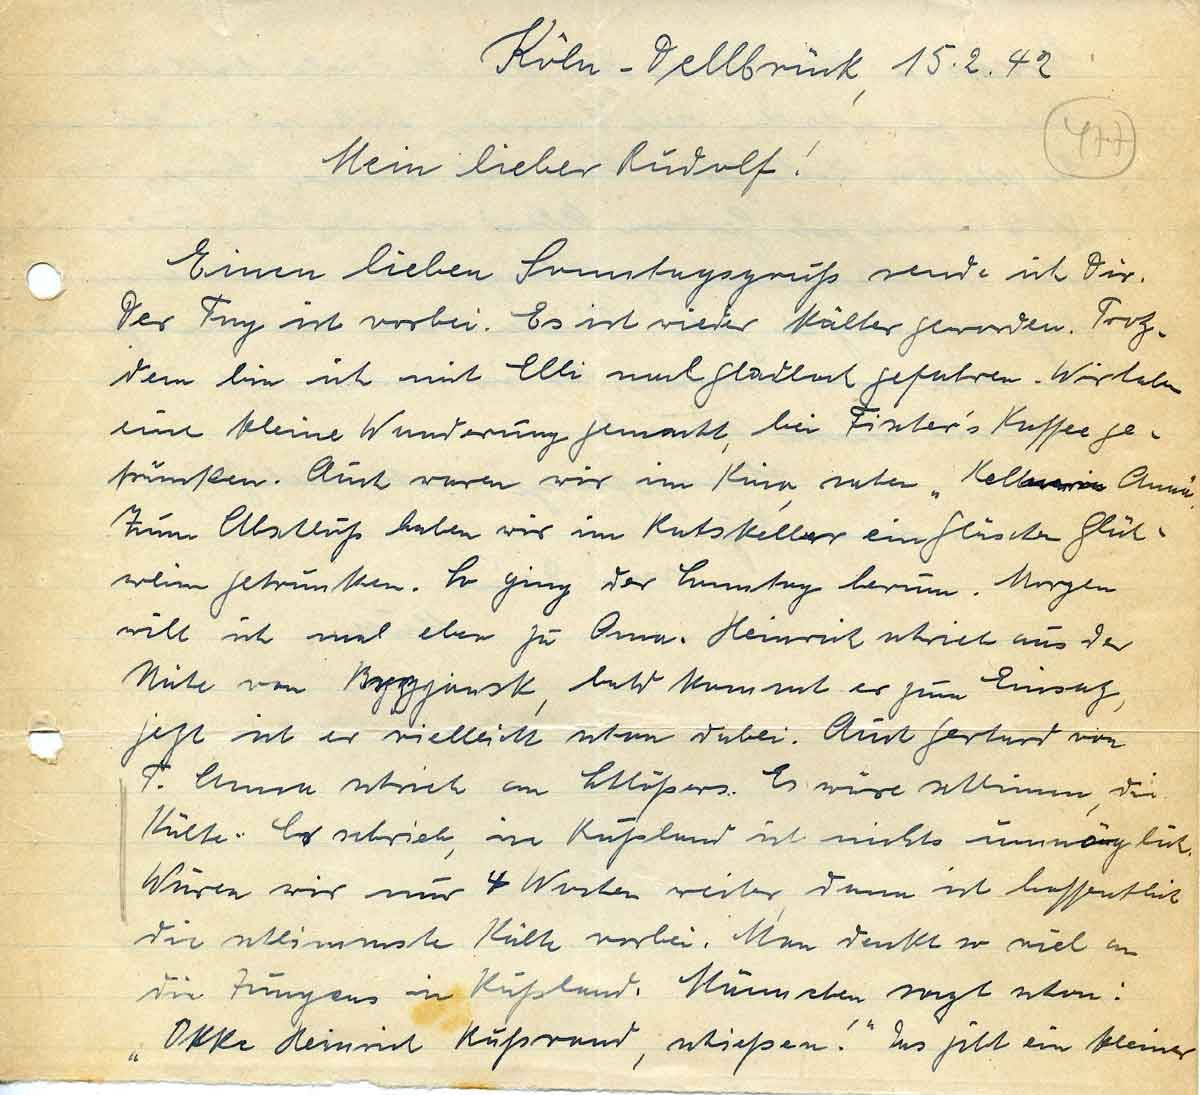 Köln-Dellbrück, 15.2.42
477
Mein lieber Rudolf!
Einen lieben Sonntagsgruß sende ich Dir.
Der Tag ist vorbei. Es ist wieder kälter geworden. Trotz-
dem bin ich mit Elli nach Gladbach gefahren. Wir haben
eine kleine Wanderung gemacht, bei Kaffee ge-
trunken. Auch waren wir im Kino, sahen „ Anna.
Zum Abschluß haben wir im Ratskeller ein Gläschen Glüh-
wein getrunken. So ging der Sonntag herum. Morgen
will ich mal eben zu Oma. Heinrich schrieb aus der
Nähe von bald kommt er zum Einsatz,
jetzt ist er vielleicht schon dabei. Auch Gerhard von
T. Anna schrieb an Schlößers. Es wäre schlimm, die
Kälte. Er schrieb, in Rußland ist nichts unmöglich.
Wären wir nur 4 Wochen weiter, dann ist hoffentlich
die schlimmste Kälte vorbei. Man denkt so viel an
die Jungens in Rußland. Männchen sagt schon:
„Okke Heinrich Rußrand, schießen!" Das gibt ein kleiner